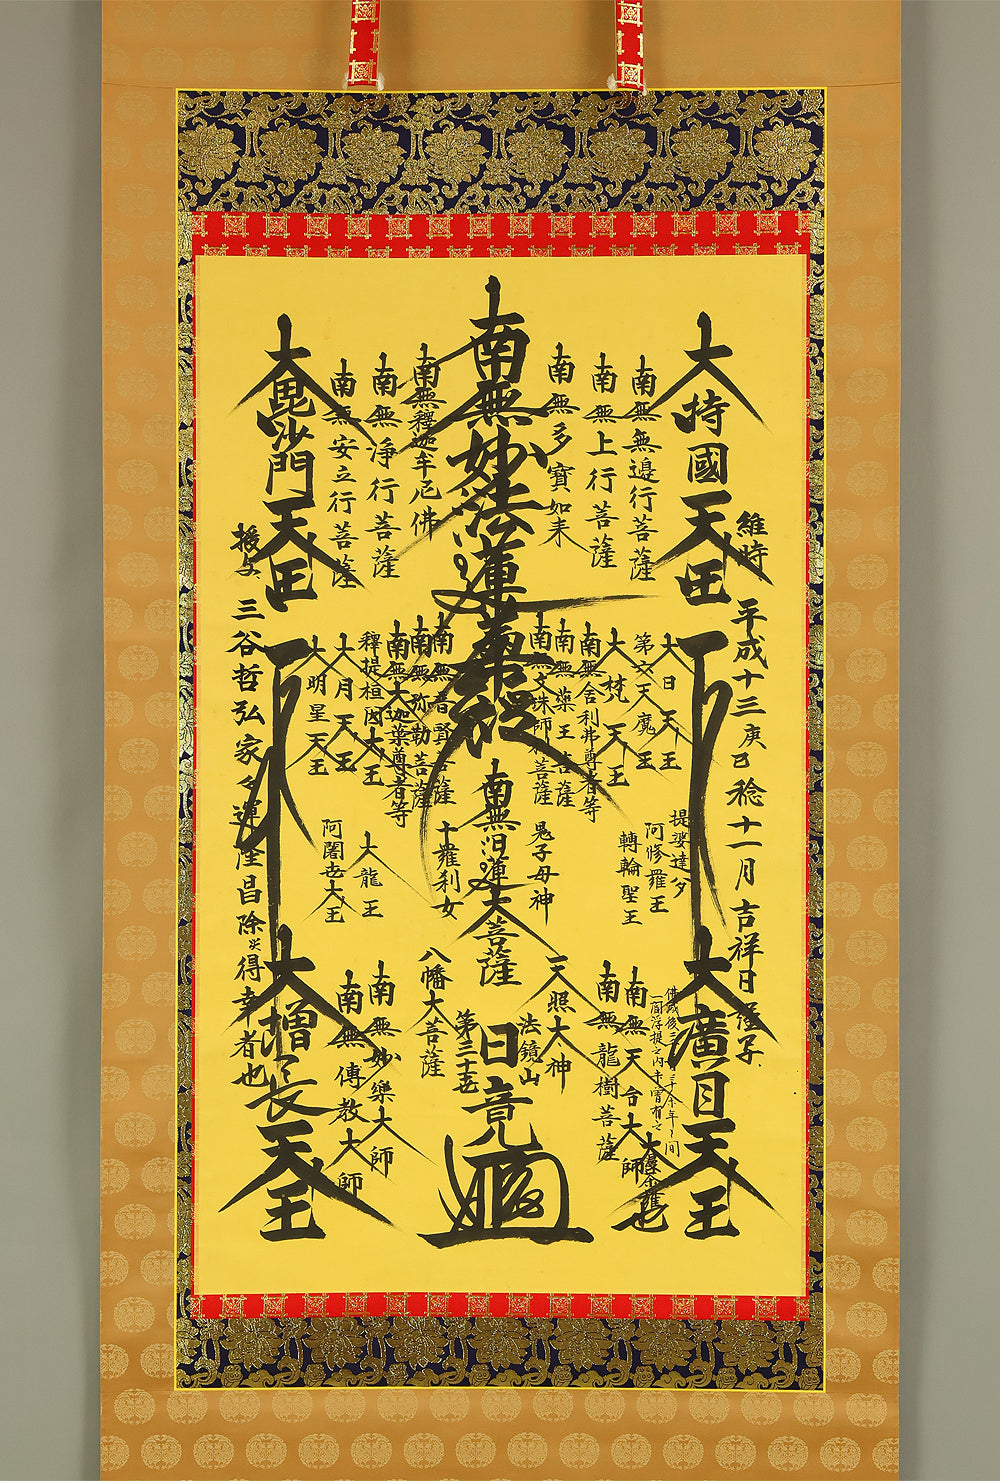 維時 平成十三庚巳稔十一月吉祥日
大持國天王
大廣目天王
南無無邊行菩薩
南無上行菩薩
南無多寶如来
南無妙法蓮華經
南無釋迦牟尼佛
南無淨行菩薩
南無安立行菩薩
大毘沙門天王
大日天王
第六天魔王
大梵天王
南無舎利弗尊者等
南無薬王菩薩
南無文殊師利菩薩
南無普賢菩薩
南無弥勒菩薩
南無大迦葉尊者等
釋提桓因大王
大月天王
大明星天王
提婆達多
阿修羅王
轉輪聖王
鬼子母神
南無日蓮大菩薩
十羅刹女
大龍王
阿闍世大王
佛滅後二千
一閻浮提之内未曽有之
大曼荼羅也
南無天台大師
南無龍樹菩薩
天照大神
法鏡山
日竟
第二十五世
八幡大菩薩
南無妙樂大師
南無傳教大師
大増長天王
授与 三谷哲弘家々運隆昌除災得幸者也